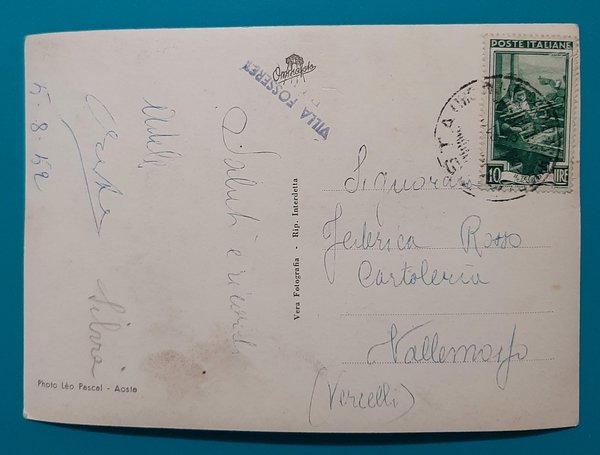 POSTE ITALIANE
10 LIRE
VILLA FOSSERET
Saluti e ricordi
Adele
Silvia
5-8-52
Vera Fotografia - Rip. Interdetta
Photo Léo Pascal - Aosta
Signora
Federica Rosso
Cartoleria
Vallemosso
(Vercelli)